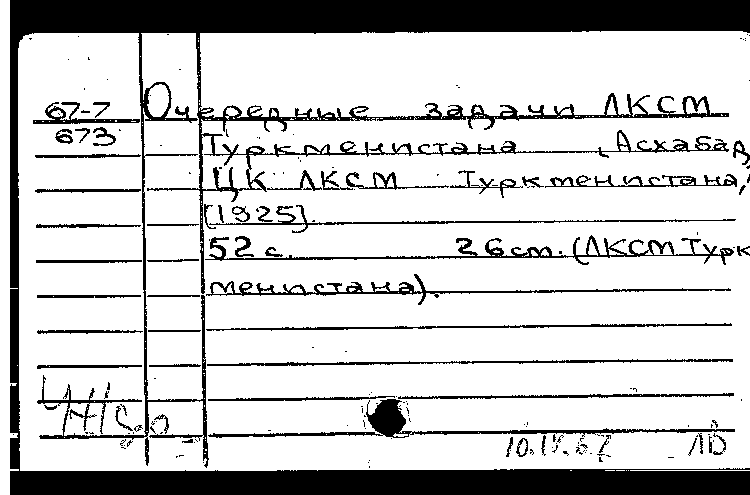 67-7 Очередные задачи ЛКСМ
673 Туркменистана. Асхабад,
ЦК ЛКСМ Туркменистана,
[1925].
52 с. 26 см. (ЛКСМ Турк
менистана).
10.IV.67 ЛВ